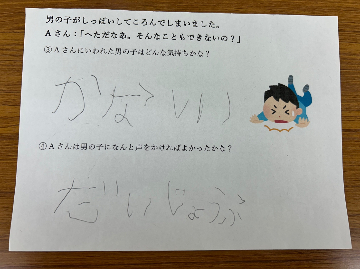 男の子がしっぱいしてころんでしまいました。
Aさん：「へただなあ。そんなこともできないの？」
③Aさんにいわれた男の子はどんな気持ちかな？
かなしい
④Aさんは男の子になんと声をかければよかったかな？
だいじょうぶ